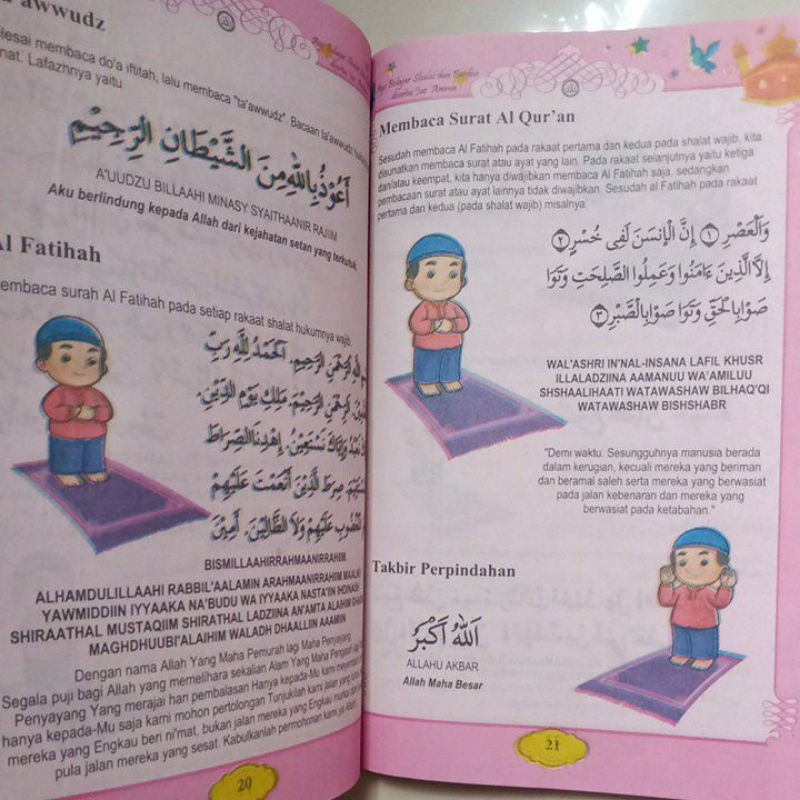 a'awwudz
elesai membaca do'a iftitah, lalu membaca "ta'awwudz". Bacaan ta'awwudz
nat. Lafazhnya yaitu
أَعُوْذُ بِاللّٰهِ مِنَ الشَّيْطَانِ الرَّجِيْمِ
A'UUDZU BILLAAHI MINASY SYAITHAANIR RAJIIM
Aku berlindung kepada Allah dari kejahatan setan yang terkutuk
Al Fatihah
embaca surah Al Fatihah pada setiap rakaat shalat hukumnya wajib.
الرَّحْمٰنِ الرَّحِيْمِ. اَلْحَمْدُ لِلّٰهِ رَبِّ
الرَّحْمٰنِ الرَّحِيْمِ. مٰلِكِ يَوْمِ الدِّيْنِ.
نَعْبُدُ وَإِيَّاكَ نَسْتَعِيْنُ. اِهْدِنَا الصِّرَاطَ
صِرَطَ الَّذِيْنَ أَنْعَمْتَ عَلَيْهِمْ
عَلَيْهِمْ وَلَا الضَّالِّيْنَ. آمِيْنَ
BISMILLAAHIRRAHMAANIRRAHIM
ALHAMDULILLAAHI RABBIL'AALAMIN ARAHMAANIRRAHIM MAALIKI
YAWMIDDIIN IYYAAKA NA'BUDU WA IYYAAKA NASTA'IIN IHDINASH
SHIRAATHAL MUSTAQIIM SHIRATHAL LADZIINA AN'AMTA ALAIHIM GHAIRIL
MAGHDHUUBI'ALAIHIM WALADH DHAALLIIN AAMIIN
Dengan nama Allah Yang Maha Pemurah lagi Maha Penyayang
Segala puji bagi Allah yang memelihara sekalian Alam Yang Maha Pengasih lagi
Penyayang Yang merajai hari pembalasan Hanya kepada-Mu kami menyembah dan
hanya kepada-Mu saja kami mohon pertolongan Tunjukilah kami jalan yang lurus
mereka yang Engkau beri ni'mat, bukan jalan mereka yang Engkau murkai dan
pula jalan mereka yang sesat. Kabulkanlah permohonan kami ya Allah
20
Membaca Surat Al Qur'an
Sesudah membaca Al Fatihah pada rakaat pertama dan kedua pada shalat wajib, kita
disunatkan membaca surat atau ayat yang lain. Pada rakaat selanjutnya yaitu ketiga
dan/atau keempat, kita hanya diwajibkan membaca Al Fatihah saja, sedangkan
pembacaan surat atau ayat lainnya tidak diwajibkan. Sesudah al Fatihah pada rakaat
pertama dan kedua (pada shalat wajib) misalnya:
وَالْعَصْرِ ١ إِنَّ الْإِنسَنَ لَفِى خُسْرٍ ٢
إِلَّا الَّذِينَ ءَامَنُوا وَعَمِلُوا الصَّلِحَتِ وَتَوَا
صَوْا بِالْحَقِّ وَتَوَا صَوْا بِالصَّبْرِ ٣
WAL'ASHRI IN'NAL-INSANA LAFIL KHUSR
ILLALADZIINA AAMANUU WA'AMILUU
SHSHAALIHAATI WATAWASHAW BILHAQ'QI
WATAWASHAW BISHSHABR
"Demi waktu. Sesungguhnya manusia berada
dalam kerugian, kecuali mereka yang beriman
dan beramal saleh serta mereka yang berwasiat
pada jalan kebenaran dan mereka yang
berwasiat pada ketabahan."
Takbir Perpindahan
اَللّٰهُ أَكْبَرُ
ALLAHU AKBAR
Allah Maha Besar
21